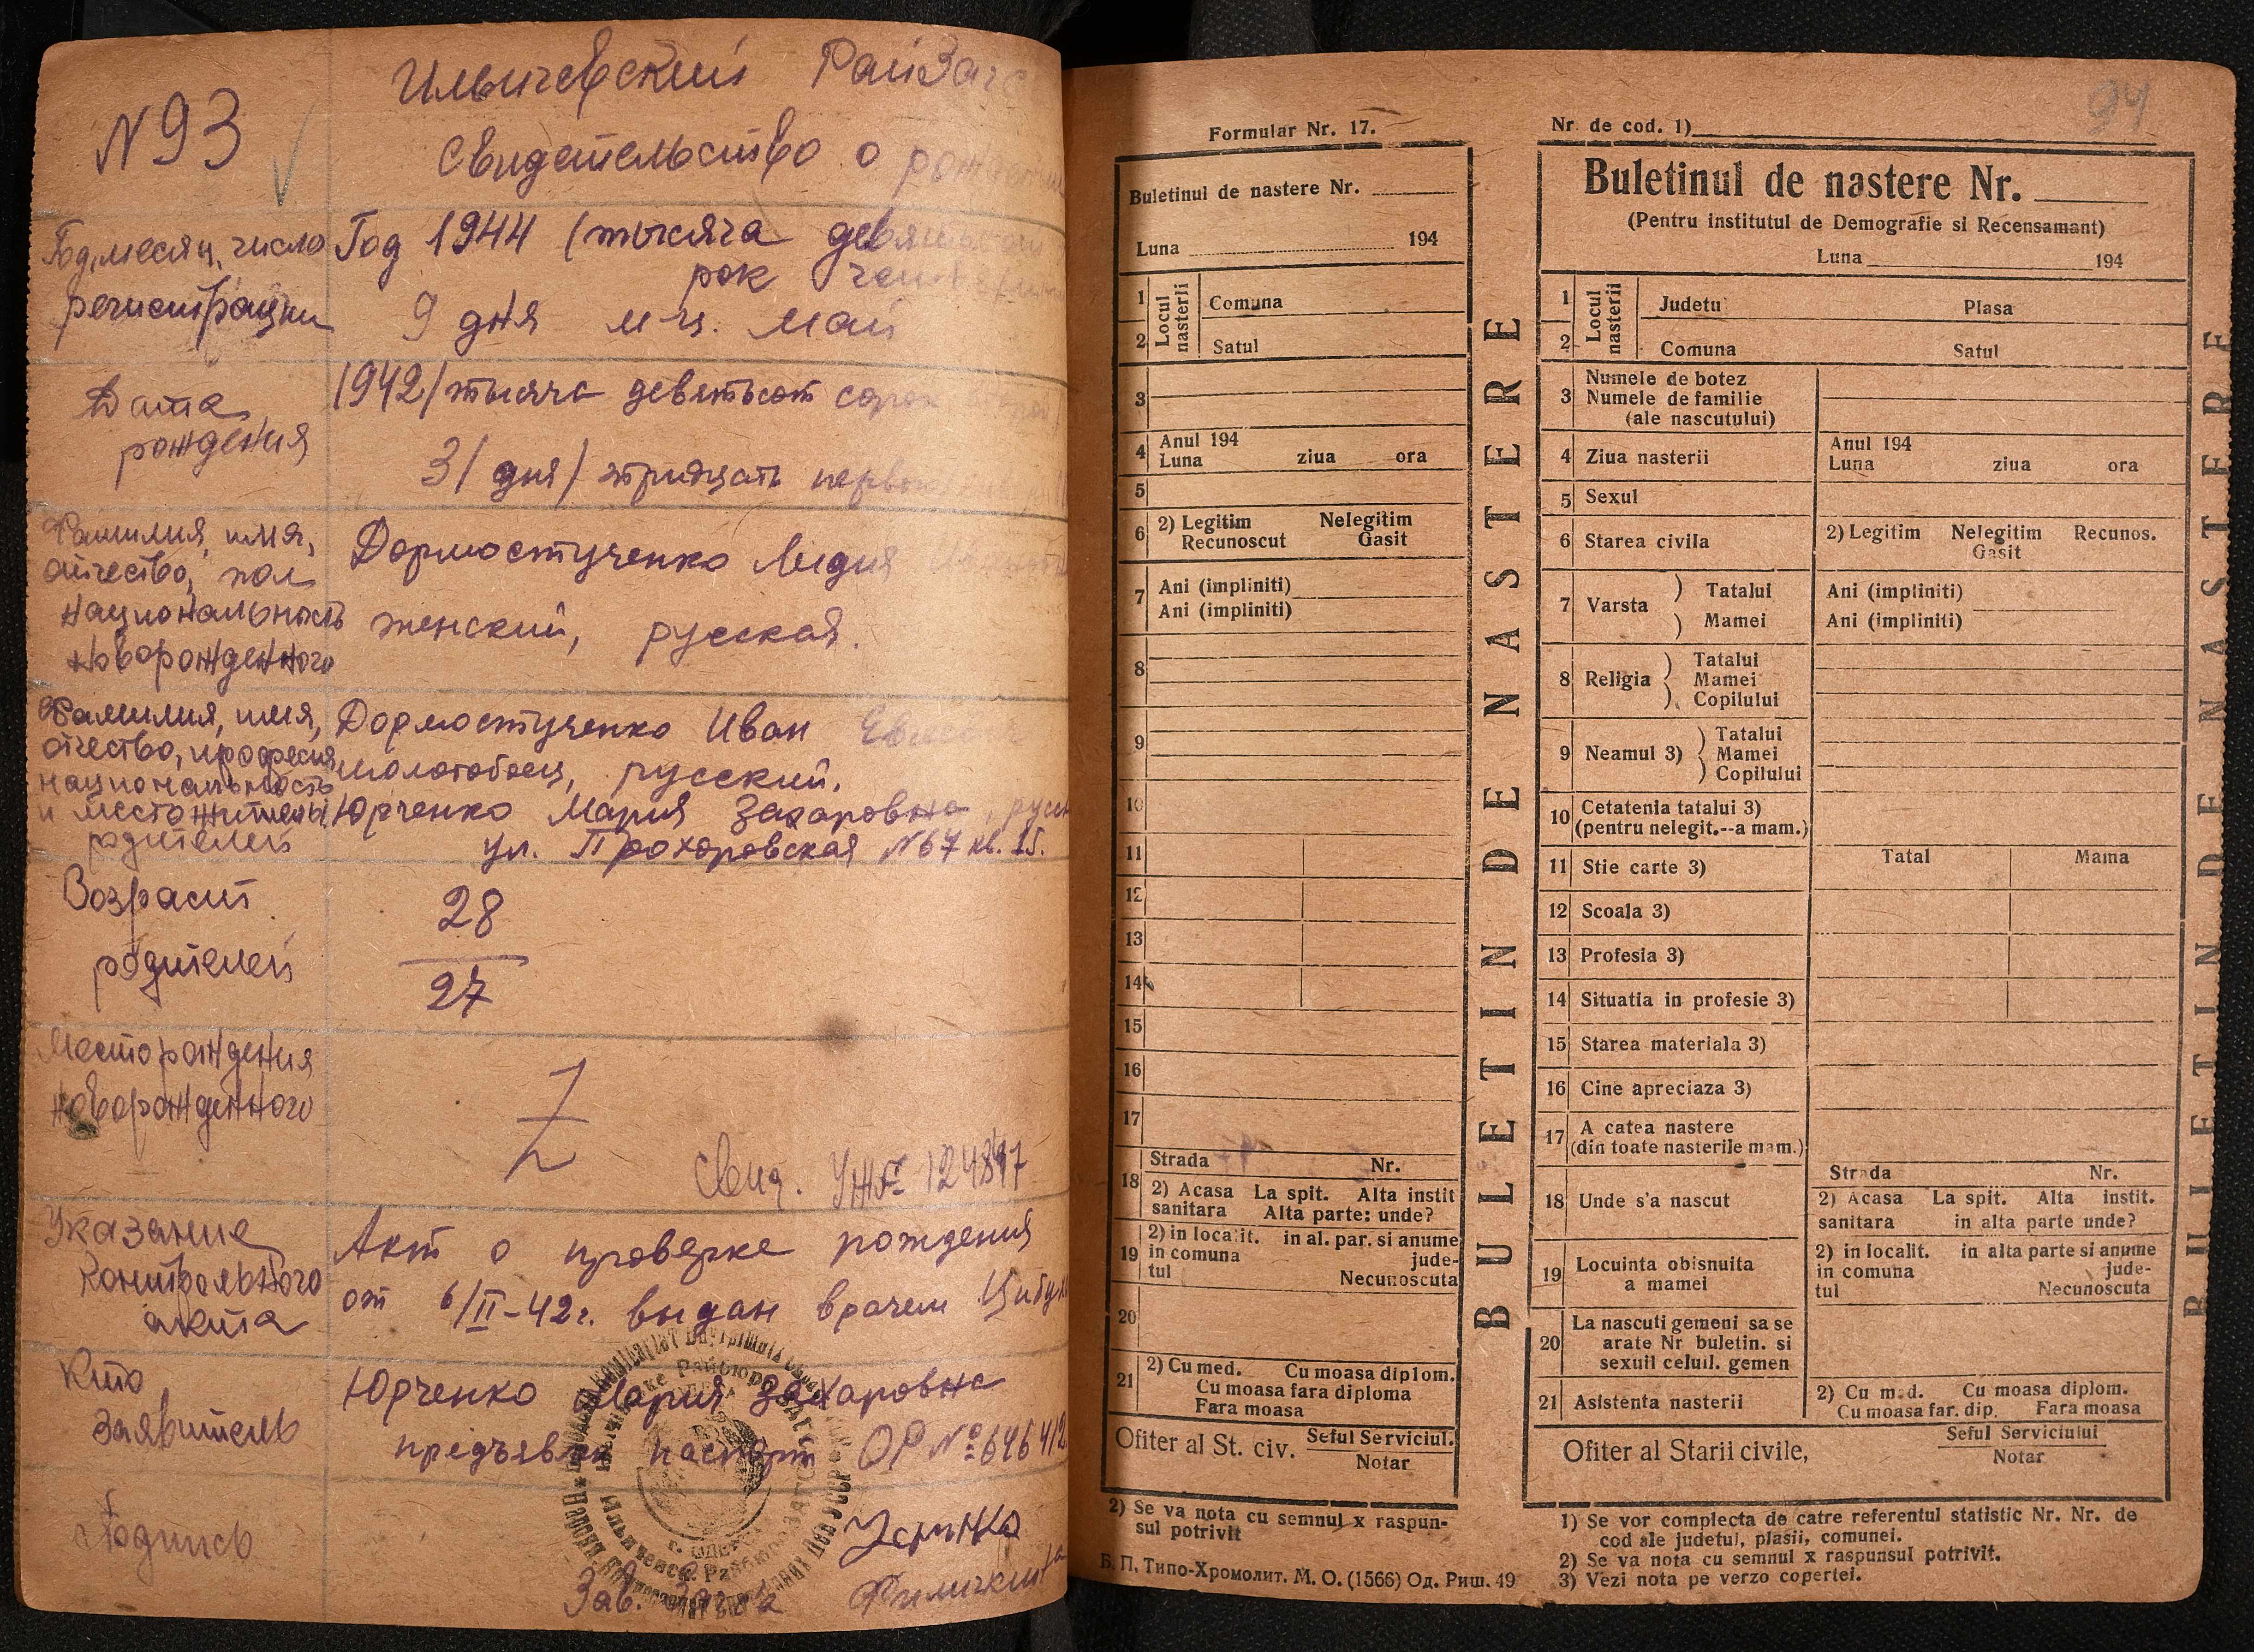 N 93
Ильичевский РайЗагс
Свидетельство о
Год, месяц, число
регистрации
Год 1944 (тысяча
рок
9 дня м-ц. май
Дата
рождения
1942/тысяча девятьсот сорок
31 дня/ тридцать
Фамилия, имя,
отчество, пол
национальность
новорожденного
Дормостученко Лидия
женский, русская.
Фамилия, имя,
отчество, професия
национальность
и местожительс
родителей
Дормостученко Иван
молотобоец, русский.
Юрченко Мария Захаровна,
ул. Прохоровская N 67 кв. 15.
Возраст
родителей
28
27
Месторождения
новорожденного
Z
Свид. УЖ №
Указание
Контрольного
акта
Акт о проверке рождения
от 6/II-42г. выдан врачем
Кто
заявитель
Юрченко Мария Захаровна
предъявлен паспорт ОР №
Подпись
Зав. Загса
94
Formular Nr. 17.
Buletinul de nastere Nr.
Luna 194
1
2
Locul nasterii
Comuna
Satul
3
4 Anul 194
Luna ziua ora
5
6 2) Legitim Nelegitim
Recunoscut Gasit
7 Ani (impliniti)
Ani (impliniti)
8
9
10
11
12
13
14
15
16
17
18 Strada Nr.
2) Acasa La spit. Alta instit
sanitara Alta parte: unde?
19 2) in localit. in al. par. si anume
in comuna jude-
tul Necunoscuta
20
21 2) Cu med. Cu moasa diplom.
Cu moasa fara diploma
Fara moasa
Ofiter al St. civ. Seful Serviciul.
Notar
2) Se va nota cu semnul x raspun-
sul potrivit
Б. П. Типо-Хромолит. М. О. (1566) Од. Риш. 49
BULETIN DE NASTERE
Nr. de cod. 1)
Buletinul de nastere Nr.
(Pentru institutul de Demografie si Recensamant)
Luna 194
1
2
Locul nasterii
Judetu Plasa
Comuna Satul
3 Numele de botez
Numele de familie
(ale nascutului)
4 Ziua nasterii Anul 194
Luna ziua ora
5 Sexul
6 Starea civila 2) Legitim Nelegitim Recunos.
Gasit
7 Varsta ) Tatalui Ani (impliniti)
) Mamei Ani (impliniti)
8 Religia Tatalui
Mamei
Copilului
9 Neamul 3) Tatalui
Mamei
Copilului
10 Cetatenia tatalui 3)
(pentru nelegit.--a mam.)
11 Stie carte 3) Tatal Mama
12 Scoala 3)
13 Profesia 3)
14 Situatia in profesie 3)
15 Starea materiala 3)
16 Cine apreciaza 3)
17 A catea nastere
(din toate nasterile mam.)
18 Unde s'a nascut Strada Nr.
2) Acasa La spit. Alta instit.
sanitara in alta parte unde?
19 Locuinta obisnuita
a mamei
2) in localit. in alta parte si anume
in comuna jude-
tul Necunoscuta
20 La nascuti gemeni sa se
arate Nr buletin. si
sexuil celuil. gemen
21 Asistenta nasterii 2) Cu m.d. Cu moasa diplom.
Cu moasa far. dip. Fara moasa
Ofiter al Starii civile, Seful Serviciului
Notar
1) Se vor complecta de catre referentul statistic Nr. Nr. de
cod ale judetul, plasii, comunei.
2) Se va nota cu semnul x raspunsul potrivit.
3) Vezi nota pe verzo copertei.
BULETIN DE NASTERE